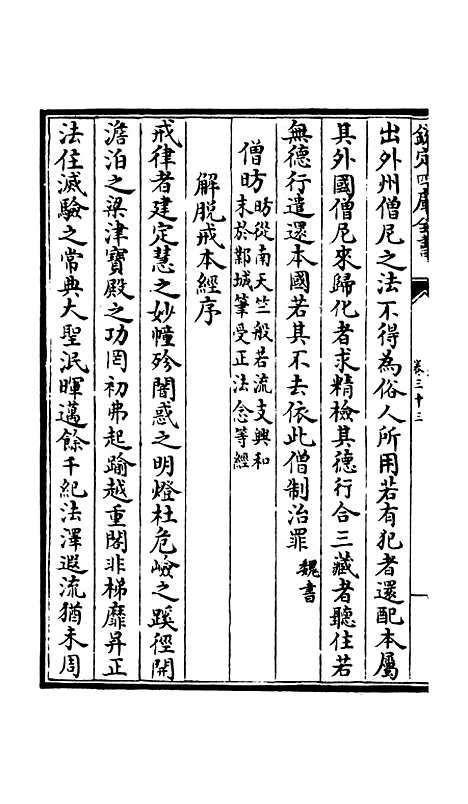 欽定四庫全書
卷三十三
出外州僧尼之法不得為俗人所用若有犯者還配本屬
其外國僧尼來歸化者求精檢其德行合三藏者聽住若
無德行遣還本國若其不去依此僧制治罪魏書
僧昉昉從南天竺般若流支興和
末於鄴城筆受正法念等經
解脱戒本經序
戒律者建定慧之妙幢殄闇惑之明燈杜危嶮之蹊徑開
澹泊之梁津寶殿之功罔初弗起踰越重閣非梯靡昇正
法住滅驗之常典大聖泯暉邁餘千紀法澤遐流猶未周